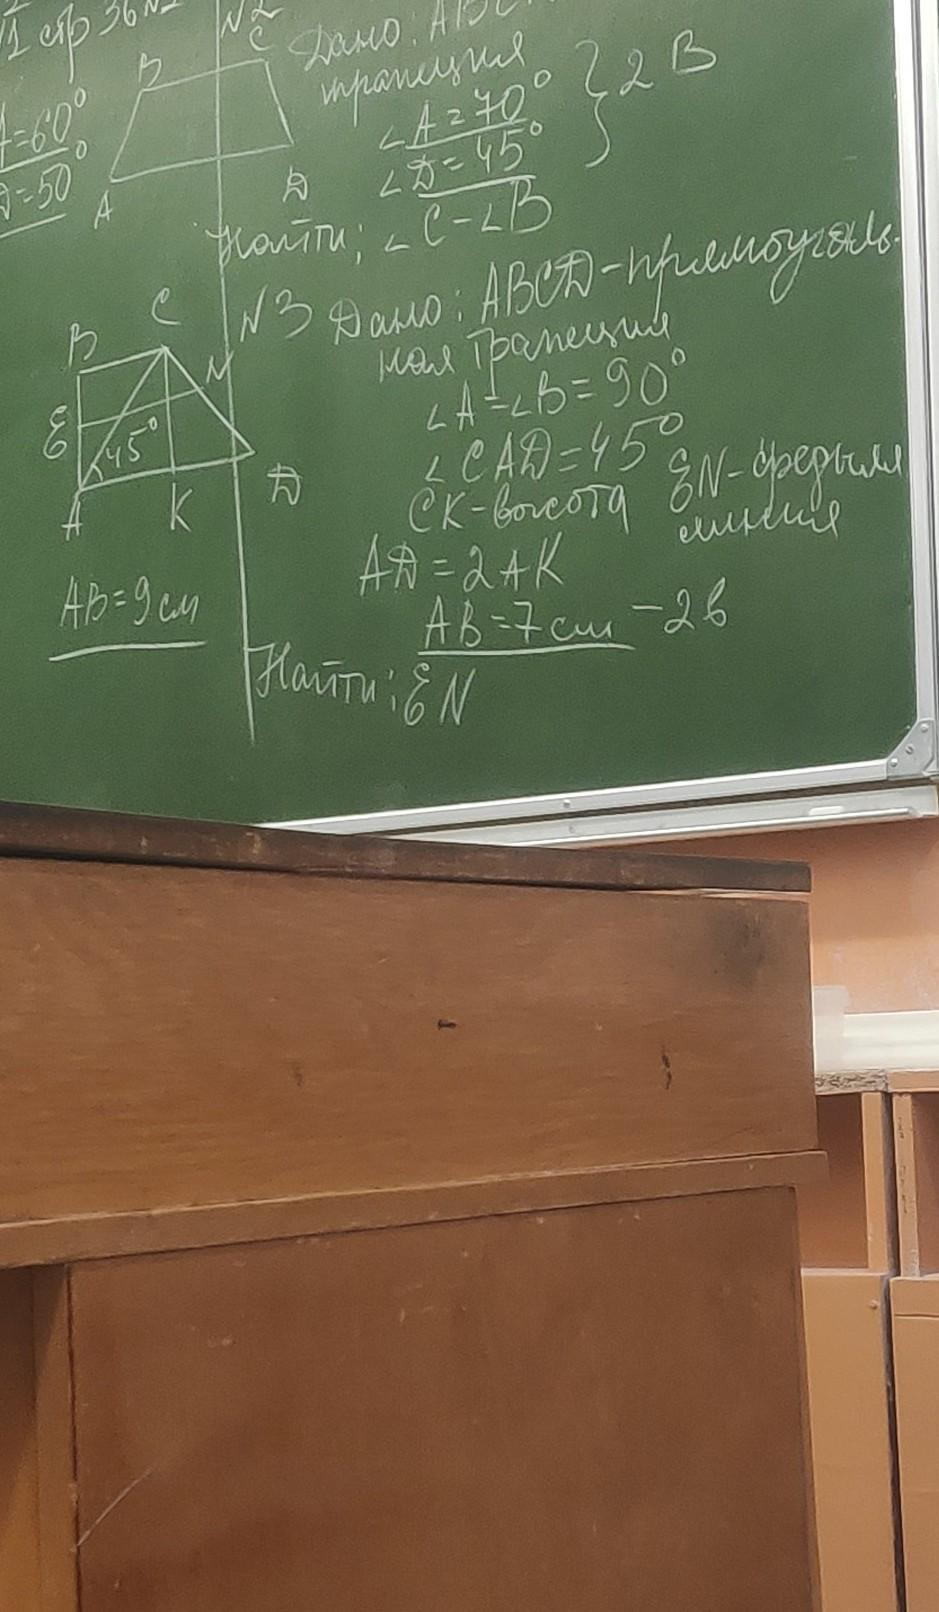 стр 36 N2
A=60°
D=50
B
C
A
D
N2
Дано: ABC
трапеция
∠A=70°
∠D=45°
} 2 В
Найти; ∠C-∠B
B
C
N
E
45°
A
K
D
AB=9см
N3 Дано: ABCD-прямоуголь-
ная трапеция
∠A=∠B=90°
∠CAD=45°
CK-высота EN-средняя
линия
AD=2AK
AB=7см -2в
Найти: EN